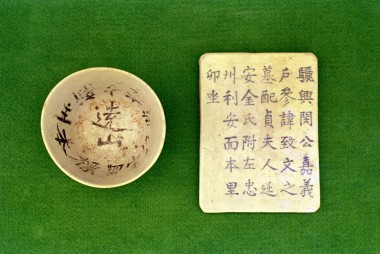 驪興閔公嘉義
戶參諱致文之
墓配貞夫人延
安金氏附左忠
州利安面本里
卯坐